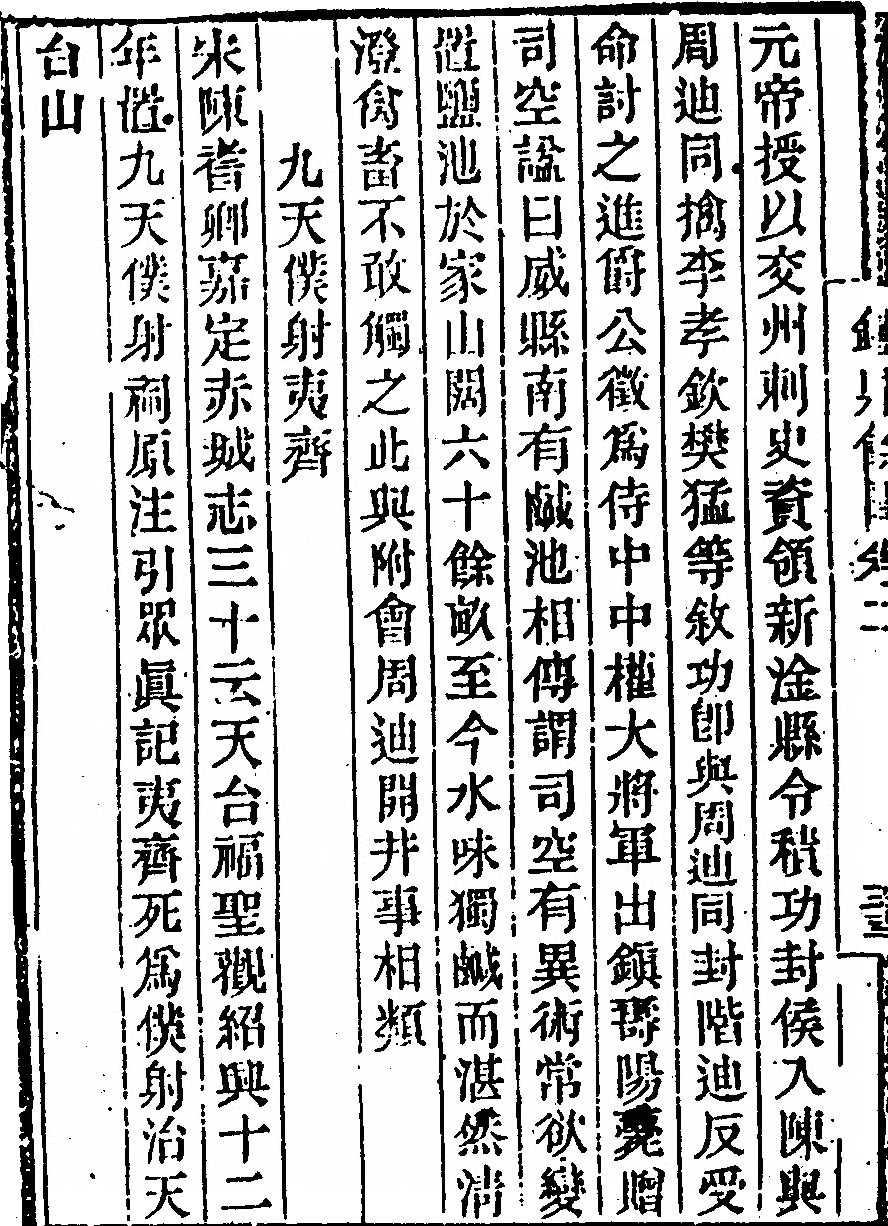 元帝授以交州刺史資領新淦縣令積功封侯入陳與
周迪同擒李孝欽樊猛等敘功卽與周迪同封階迪反受
命討之進爵公徵爲侍中中權大將軍出鎭尋陽薨贈
司空諡曰威縣南有鹹池相傳謂司空有異術常欲變
造鹽池於家山闊六十餘畝至今水味獨鹹而湛然淸
潑禽畜不敢觸之此與附會周迪開井事相類
九天僕射夷齊
宋陳耆卿嘉定赤城志三十云天台福聖觀紹興十二
年造九天僕射祠原注引眾眞記夷齊死爲僕射治天
台山